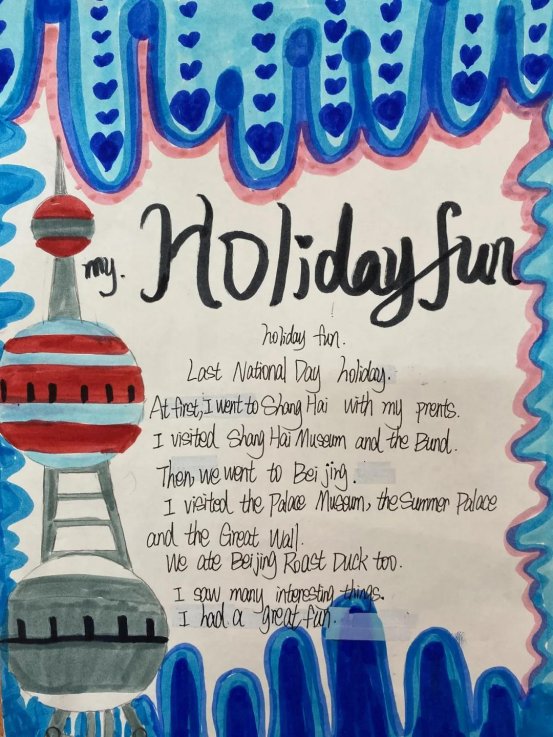 my. Holiday fun
holiday fun.
Last National Day holiday.
At first, I went to Shang Hai with my prents.
I visited Shang Hai Museum and the Bund.
Then, we went to Bei jing.
I visited the Palace Museum, the Summer Palace
and the Great Wall.
We ate Beijing Roast Duck too.
I saw many interesting things.
I had a great fun.